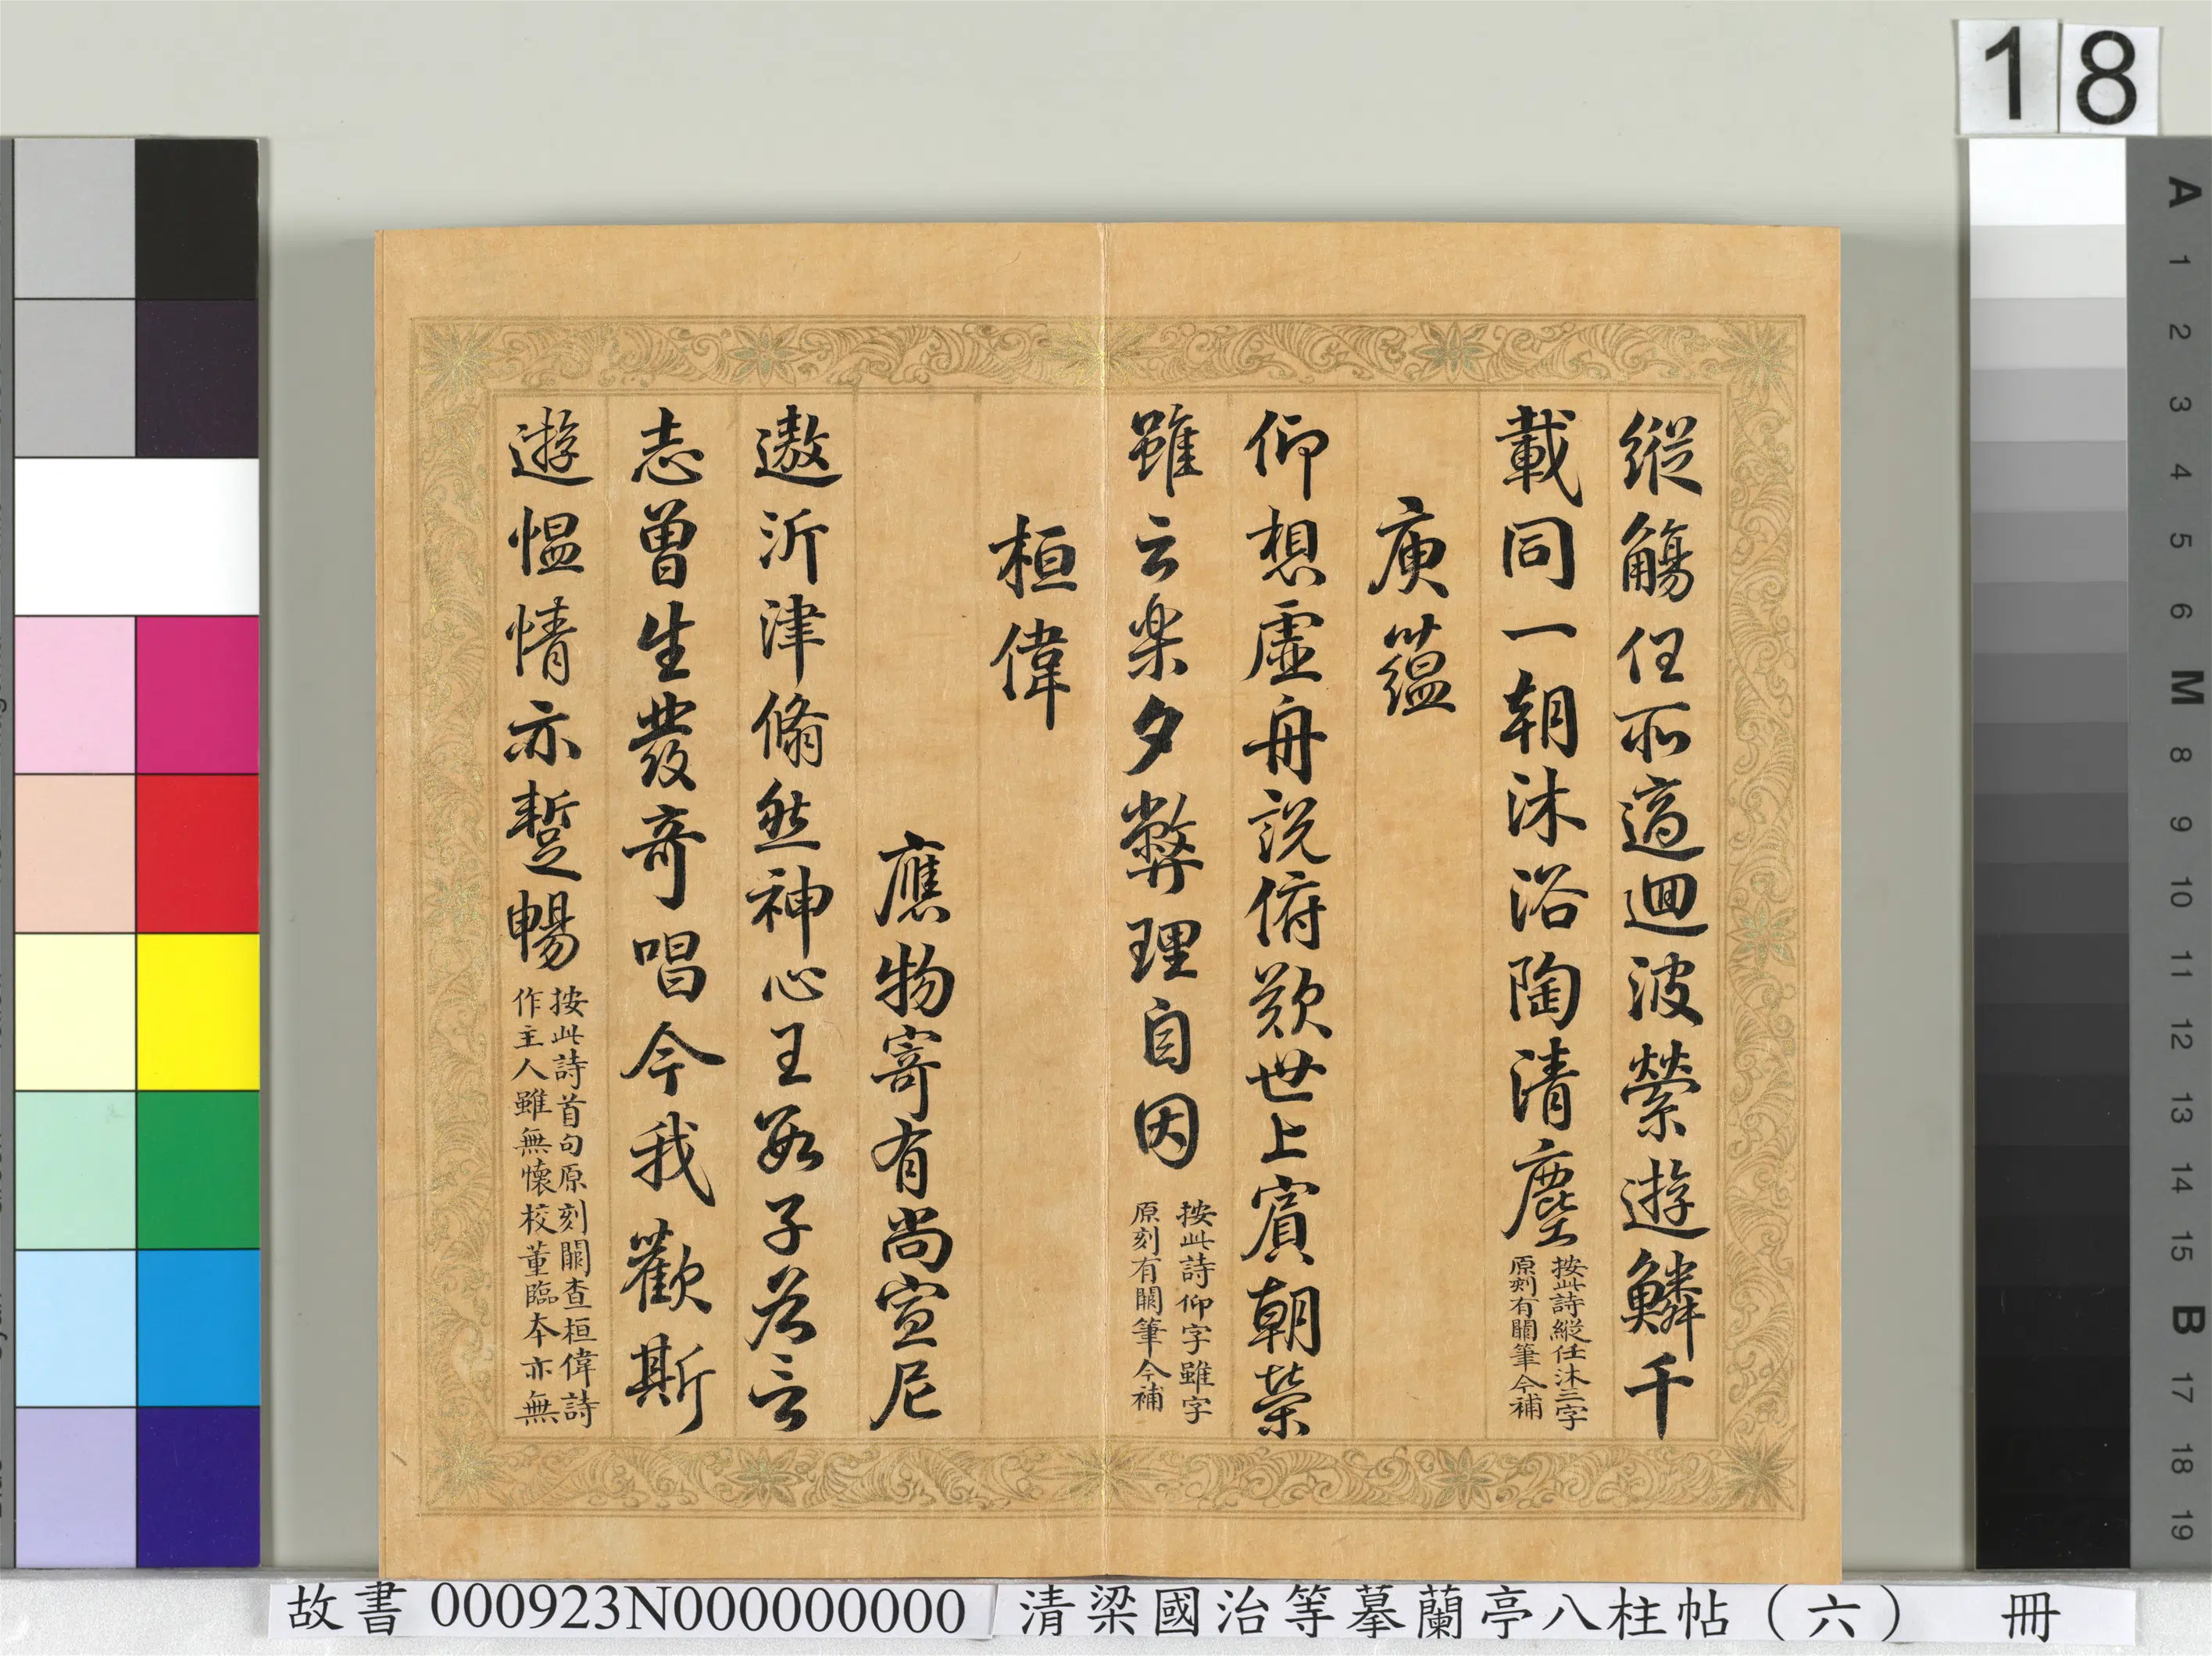 18
縱觴任所適迴波縈遊鱗千
載同一朝沐浴陶清塵
按此詩縱任沐三字
原刻有闕筆今補
庾蘊
仰想虛舟說俯歎世上賓朝榮
雖云楽夕弊理自因
按此詩仰字雖字
原刻有闕筆今補
桓偉
應物寄有尚宣尼
遨沂津翛然神心王數子各言
志曾生發奇唱今我歡斯
遊慍情亦蹔暢
按此詩首句原刻闕查桓偉詩
作主人雖無懷校董臨本亦無
故書 000923N000000000 清梁國治等摹蘭亭八柱帖（六） 冊
A
1
2
3
4
5
6
M
8
9
10
11
12
13
14
15
B
17
18
19